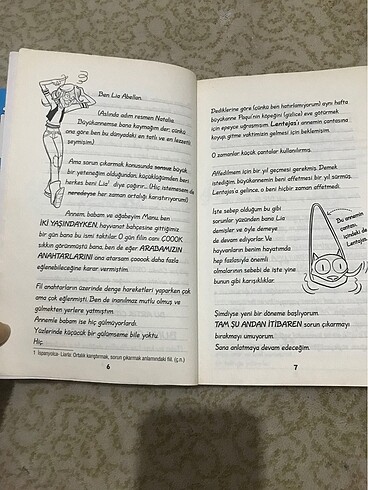 Ben Lia Abellan.
(Aslında adım resmen Natalia.
Büyükannemse bana kaymağım der; çünkü
ona göre ben bu dünyadaki en tatlı ve en lezzetli
şeymişim.)
Ama sorun çıkarmak konusunda sonsuz büyük
bir yeteneğim olduğundan, küçüklüğümden beri
herkes beni Lia¹ diye çağırır... (Hiç istemesem de
neredeyse her zaman ortalığı karıştırıyorum!)
Annem, babam ve ağabeyim Manu, ben
İKİ YAŞINDAYKEN, hayvanat bahçesine gittiğimiz
bir gün bana bu ismi taktılar. O gün filin canı ÇOOOK
sıkkın görünmüştü bana, ben de eğer ARABAMIZIN
ANAHTARLARINI ona atarsam çooook daha fazla
eğlenebileceğine karar vermiştim.
Fil anahtarların üzerinde denge hareketleri yaparken çok
ama çok eğlenmişti. Ben de inanılmaz mutlu olmuş ve
gülmekten yerlere yatmıştım.
Annemle babam ise hiç gülmüyorlardı.
Yüzlerinde küçücük bir gülümseme bile yoktu.
Hiç.
1 İspanyolca- Liarla: Ortalık karıştırmak, sorun çıkarmak anlamındaki fiil. (ç.n.)
6
Dediklerine göre (çünkü ben hatırlamıyorum) aynı hafta
büyükanne Paqui'nin köpeğini (gizlice) eve götürmek
için epeyce uğraşmışım. Lentejas'ı annemin çantasına
koyup gitme vaktimizin gelmesini beklemişim.
O zamanlar küçük çantalar kullanılırmış.
Affedilmem için bir yıl geçmesi gerekmiş. Demek
istediğim, büyükannemin beni affetmesi bir yıl sürmüş.
Lentejas'a gelince, o beni hiçbir zaman affetmedi.
İşte sebep olduğum bu gibi
sorunlar yüzünden bana Lia
demişler ve öyle demeye
de devam ediyorlar. Ve
hayvanların benim hayatımda
hep fazlasıyla önemli
olmalarının sebebi de işte yine
bunun gibi karışıklıklar.
Bu annemin
çantası,
içindeki de
Lentejas.
Şimdiyse yeni bir döneme başlıyorum.
TAM ŞU ANDAN İTİBAREN sorun çıkarmayı
bırakmayı umuyorum.
Sana anlatmaya devam edeceğim.
7